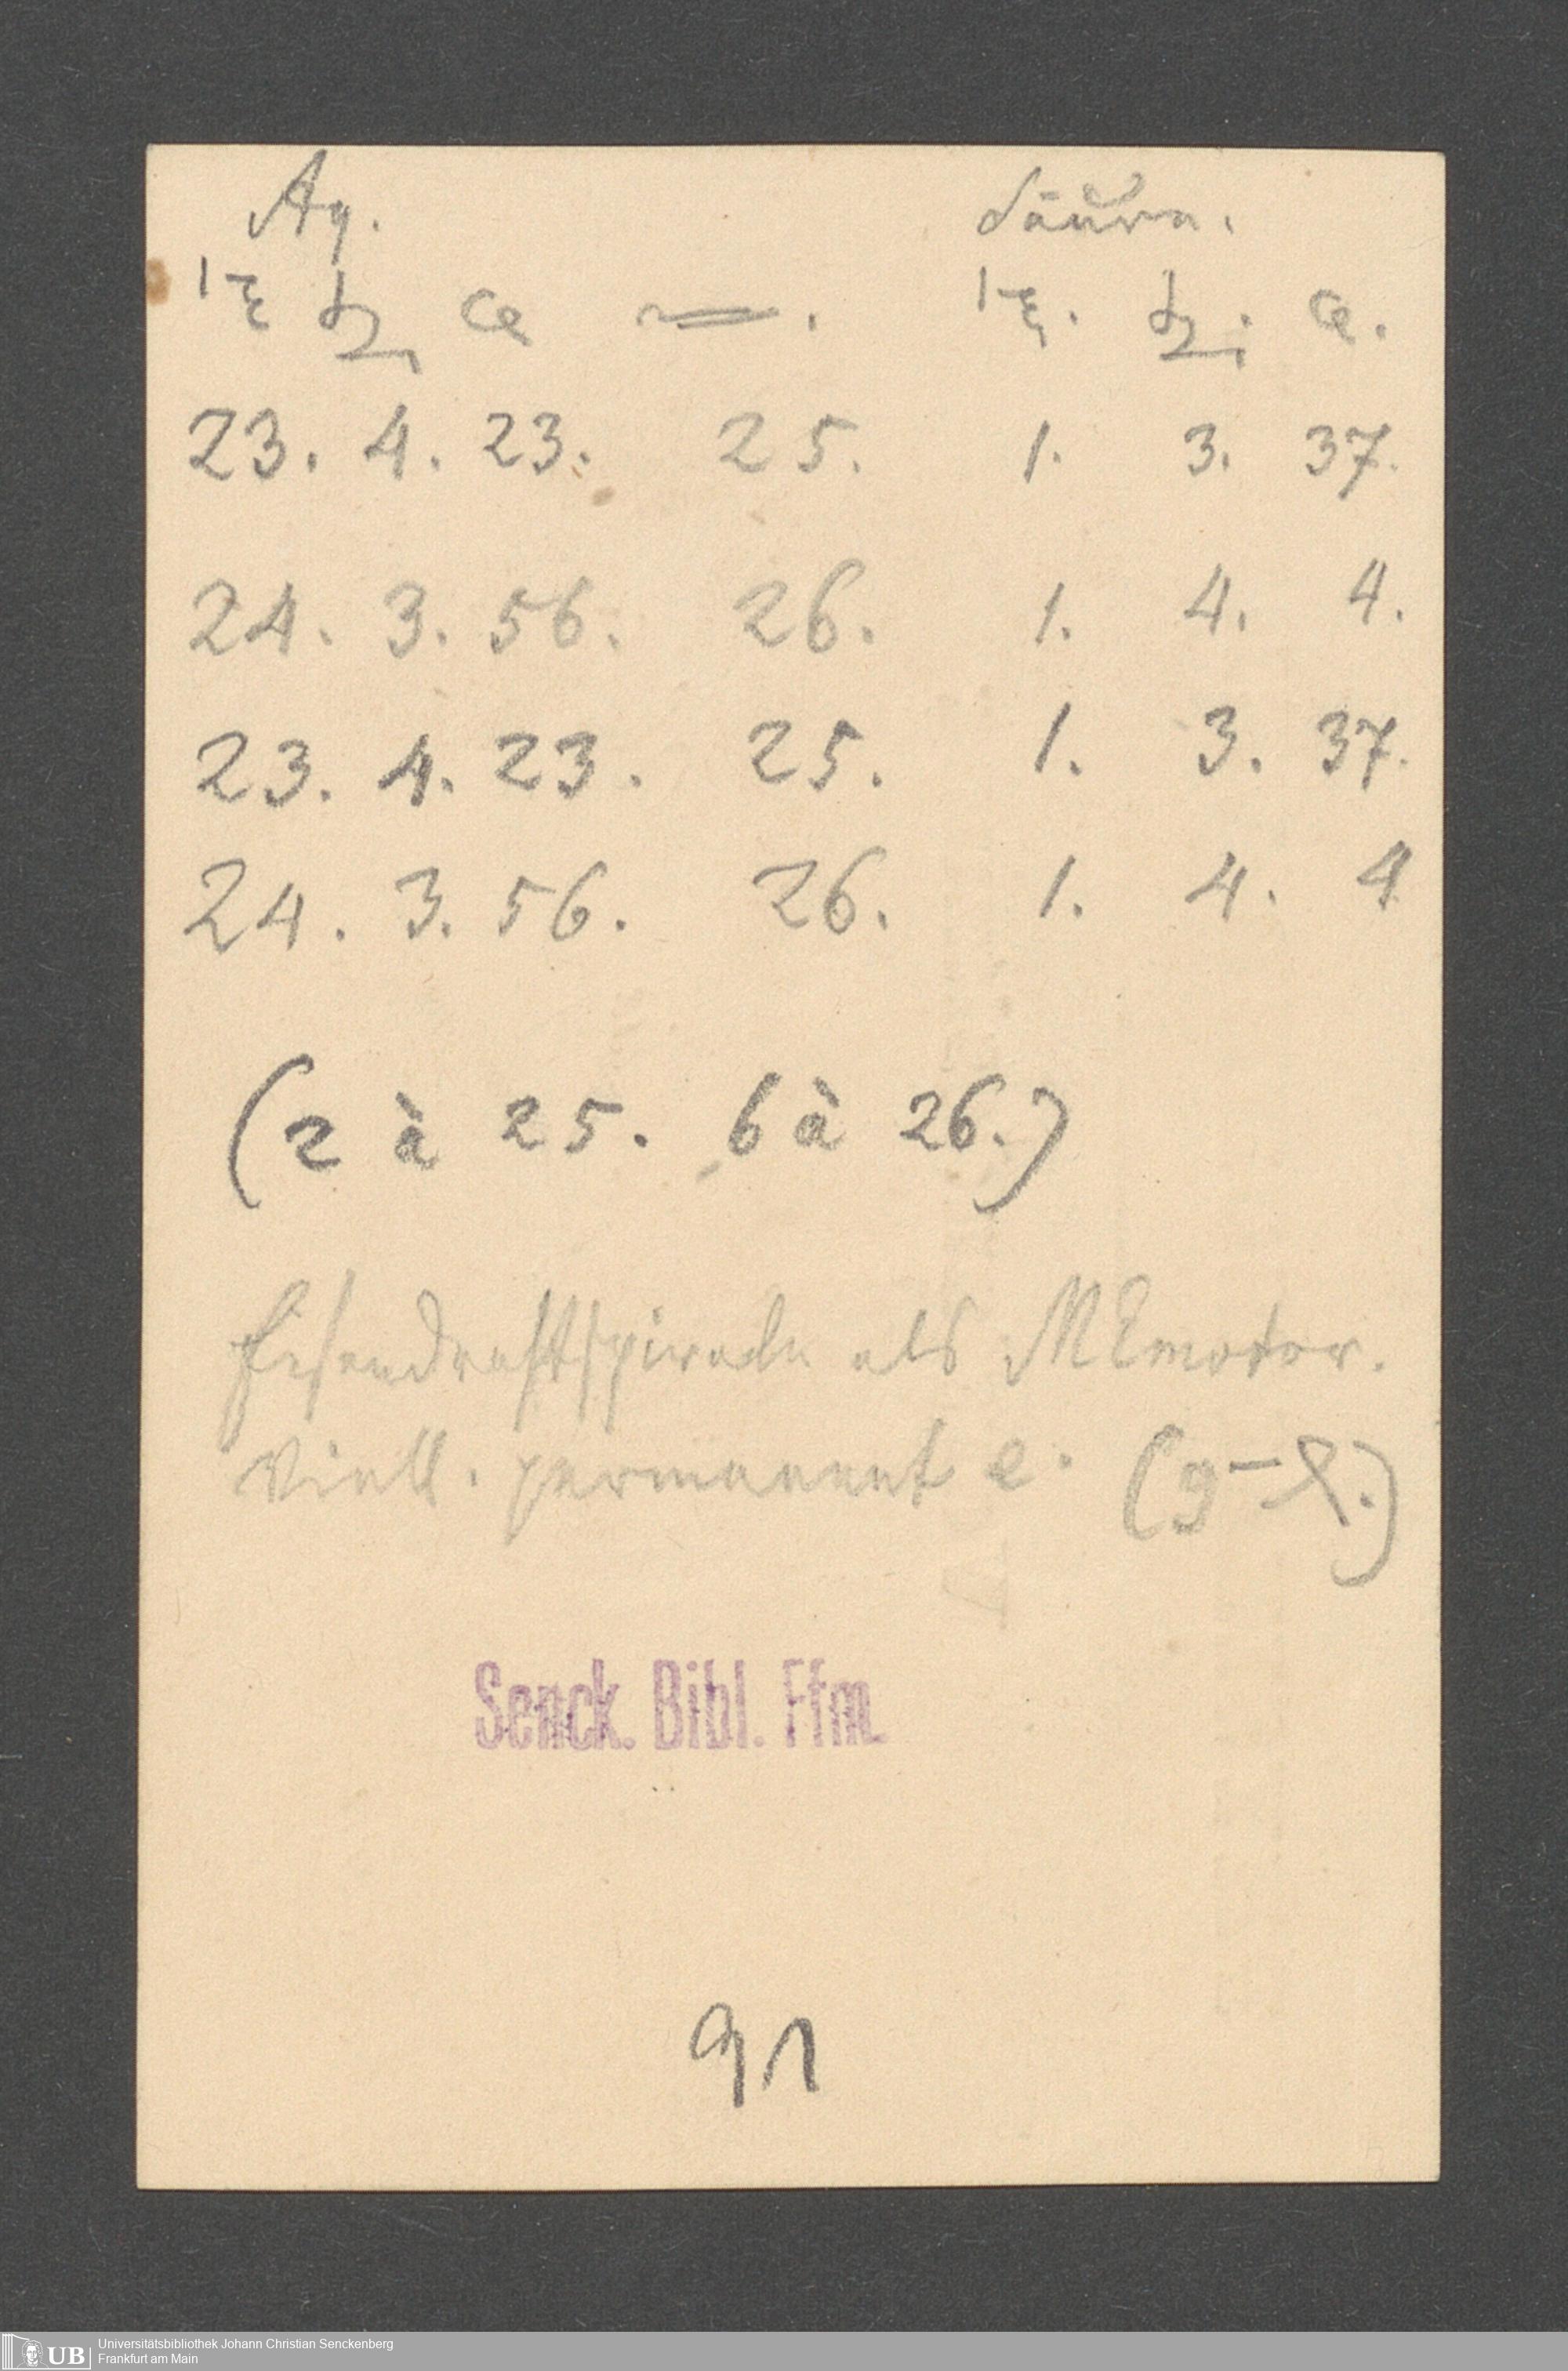 Aq. Säure.
23. 4. 23. 25. 1. 3. 37.
24. 3. 56. 26. 1. 4. 4.
23. 4. 23. 25. 1. 3. 37.
24. 3. 56. 26. 1. 4. 4
(2 à 25. 6 à 26.)
Eisendrahtspirale als MEmotor.
Viell. permanent e.
Senck. Bibl. Ffm.
91
UB
Universitätsbibliothek Johann Christian Senckenberg
Frankfurt am Main